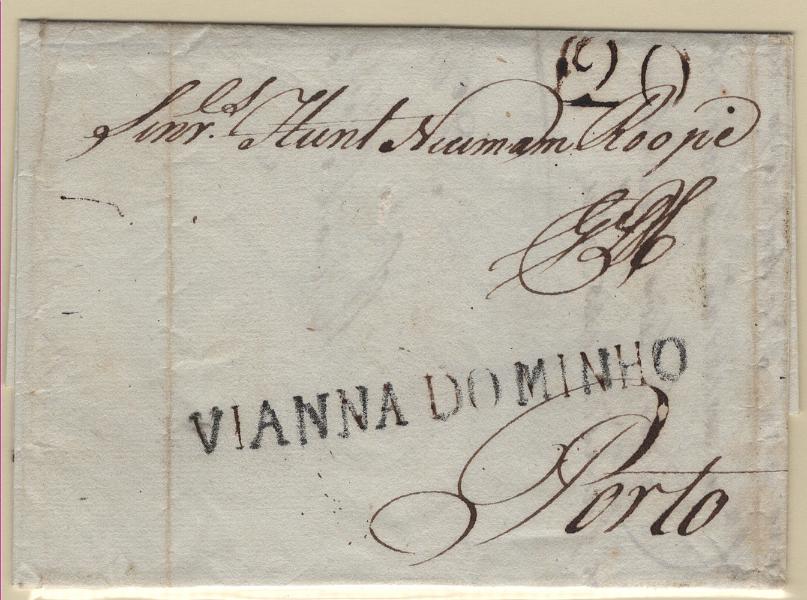 Sinr.es Hunt Newmam Roope
VIANNA DO MINHO
Porto